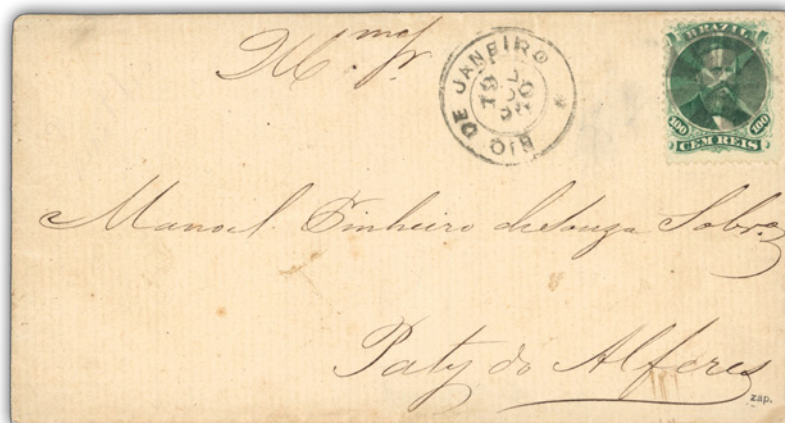 Ill.mo Sr.
RIO DE JANEIRO
BRAZIL
100 100
CEM REIS
Manoel Pinheiro de Souza Sobr.o
Paty do Alferes
zap.